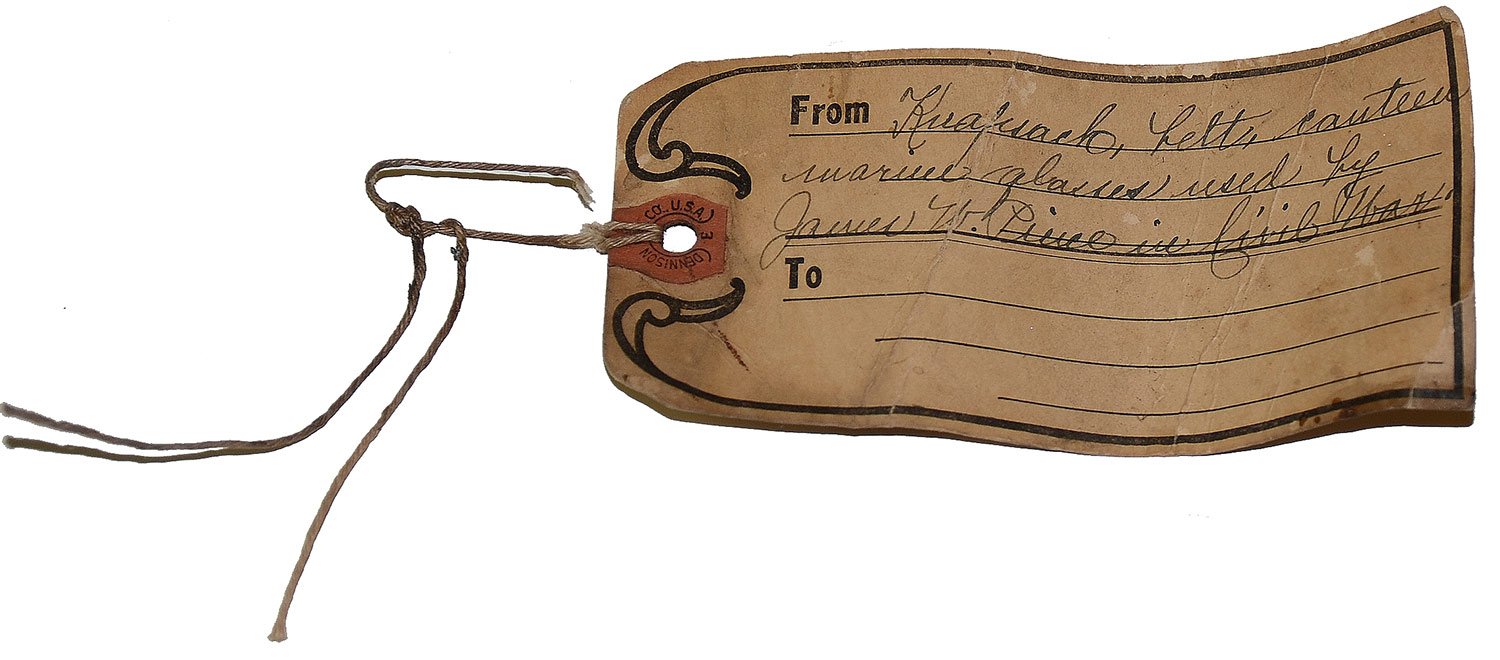 From Knapsack, belt, canteen
marine glasses used by
James W. in Civil War.
To
CO., U.S.A.) 3 (DENNISON